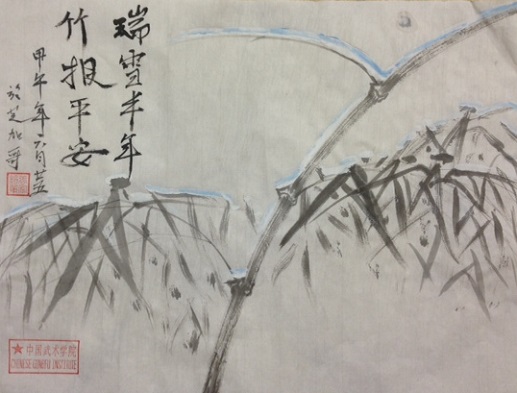 瑞雪丰年
竹报平安
甲午年六月芸
於芝加哥
中國武术学院
CHINESE GUNGFU INSTITUTE